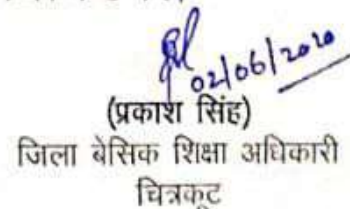 02/06/2020
(प्रकाश सिंह)
जिला बेसिक शिक्षा अधिकारी
चित्रकूट